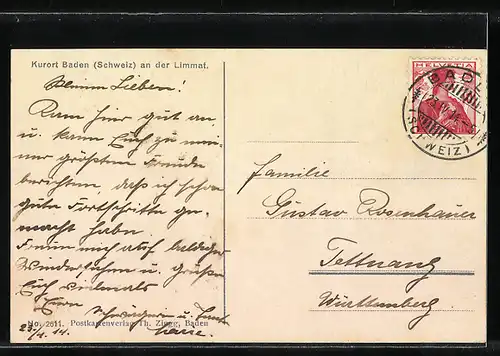 Kurort Baden (Schweiz) an der Limmat.
Meinen Lieben!
Kam hier gut an
u. kann Euch zu mei-
ner größten Freude
berichten, daß ich schon
gute Fortschritte ge-
macht haben.
Freue mich auf baldiges
Wiedersehen u. grüße
Euch vielmals
Eure
Schwägerin u. Tante
23./4. 14.
No. 2511. Postkartenverlag Th. Zingg, Baden
HELVETIA
BADEN
(SCHWEIZ)
Familie
Gustav Rosenhauer
Tettnang
Württemberg.